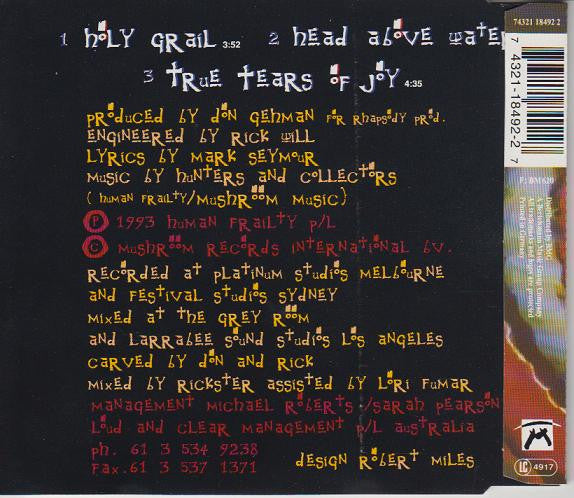 1 Holy Grail 3:52 2 Head Above Water
3 True Tears of Joy 4:35
Produced by Don Gehman for Rhapsody Prod.
Engineered by Rick Will
Lyrics by Mark Seymour
Music by Hunters and Collectors
(Human Frailty/Mushroom Music)
P 1993 Human Frailty P/L
C Mushroom Records International BV.
Recorded at Platinum Studios Melbourne
and Festival Studios Sydney
Mixed at the Grey Room
and Larrabee Sound Studios Los Angeles
Carved by Don and Rick
Mixed by Rickster assisted by Lori Fumar
Management Michael Roberts/Sarah Pearson
Loud and Clear Management P/L Australia
Ph. 61 3 534 9238
Fax. 61 3 537 1371
Design Robert Miles
74321 18492 2
7 4321-18492-2 7
F: BM 620
Distributed by BMG
A Bertelsmann Music Group Company
All trademarks and logos are protected
Printed in Germany
LC 4917